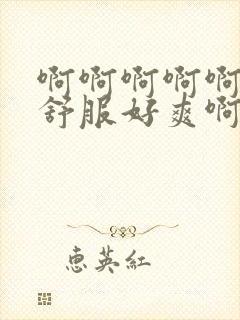 啊啊啊啊啊
舒服好爽啊
惠英紅